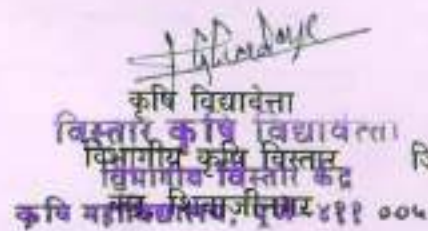 कृषि विद्यावेत्ता
विस्तार कृषि विद्यावेत्ता
विभागीय कृषि विस्तार
विभागीय विस्तार केंद्र
शिवाजीनगर
कृषि महाविद्यालय, पुणे ४११ ००५